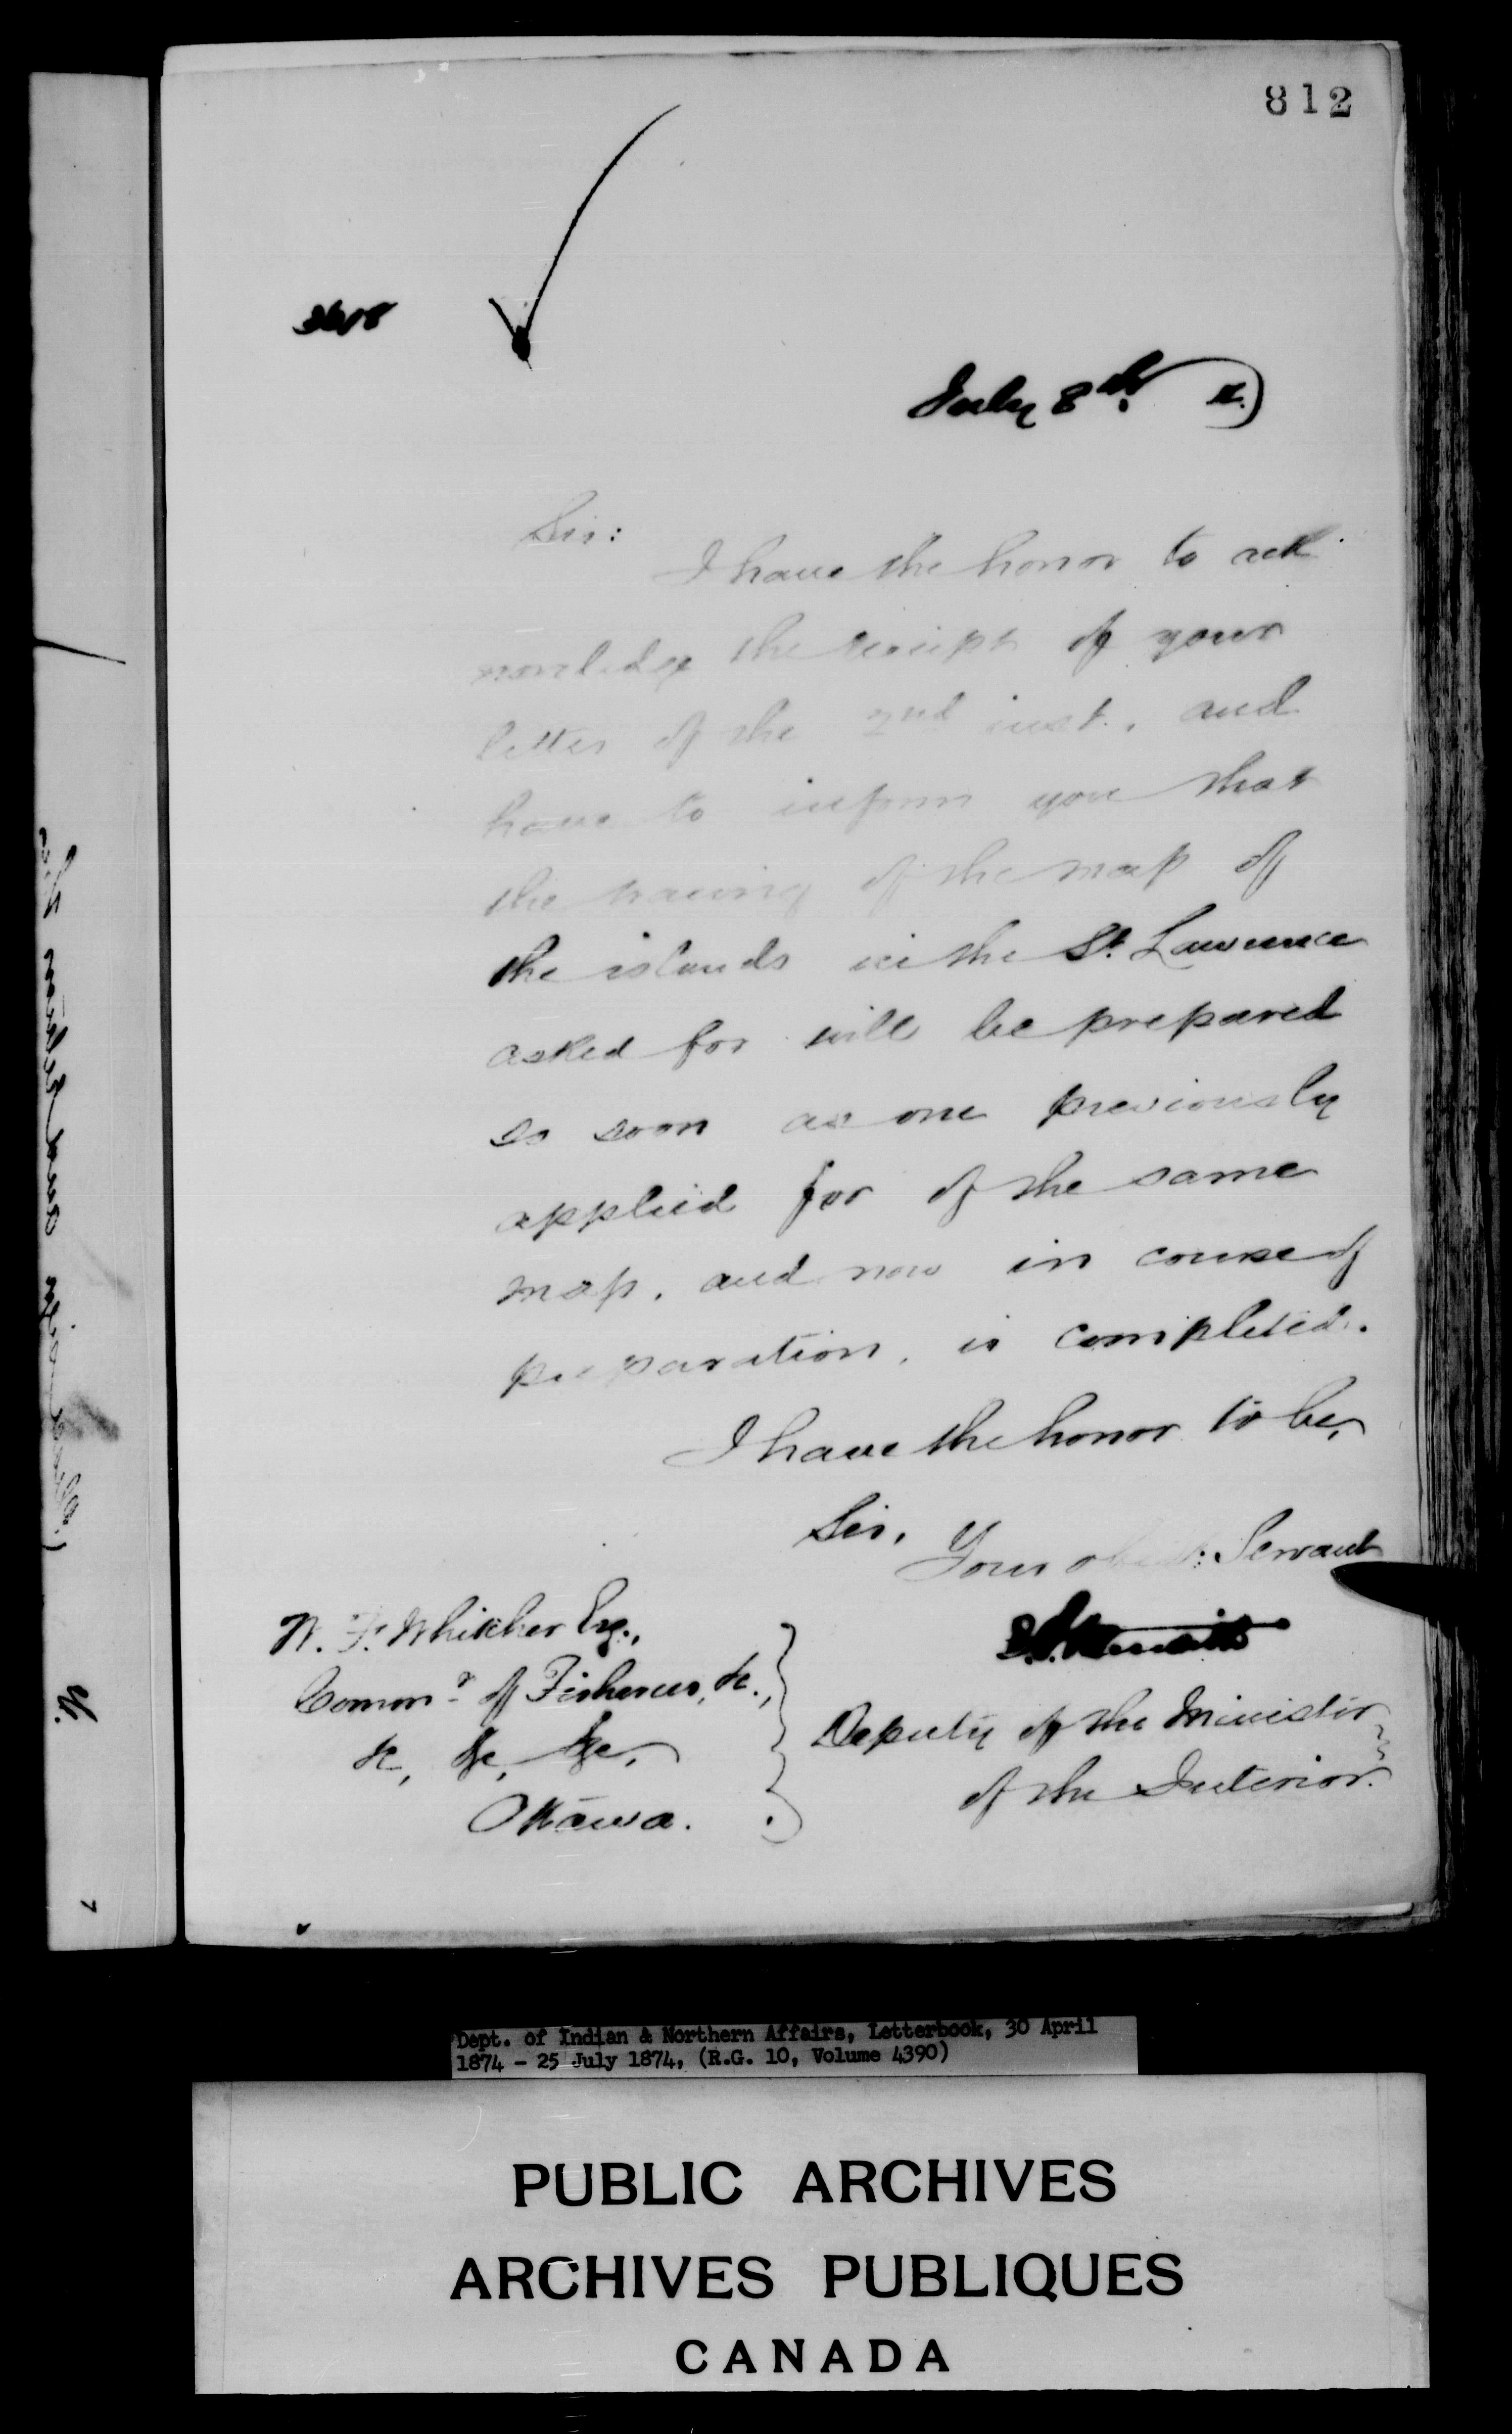 812
3618
July 8th. 4.
Sir:
I have the honor to ack-
nowledge the receipt of your
letter of the 2nd inst., and
have to inform you that
the tracing of the map of
the islands in the St. Lawrence
asked for will be prepared
so soon as one previously
applied for of the same
map, and now in course of
preparation, is completed.
I have the honor to be,
Sir,
Your obedt. Servant
W. F. Whitcher Esq.,
Commr. of Fisheries, &c.,
&c, &c, &c,
Ottawa.
Deputy of the Minister
of the Interior.
Dept. of Indian & Northern Affairs, Letterbook, 30 April
1874 - 25 July 1874, (R.G. 10, Volume 4390)
PUBLIC ARCHIVES
ARCHIVES PUBLIQUES
CANADA